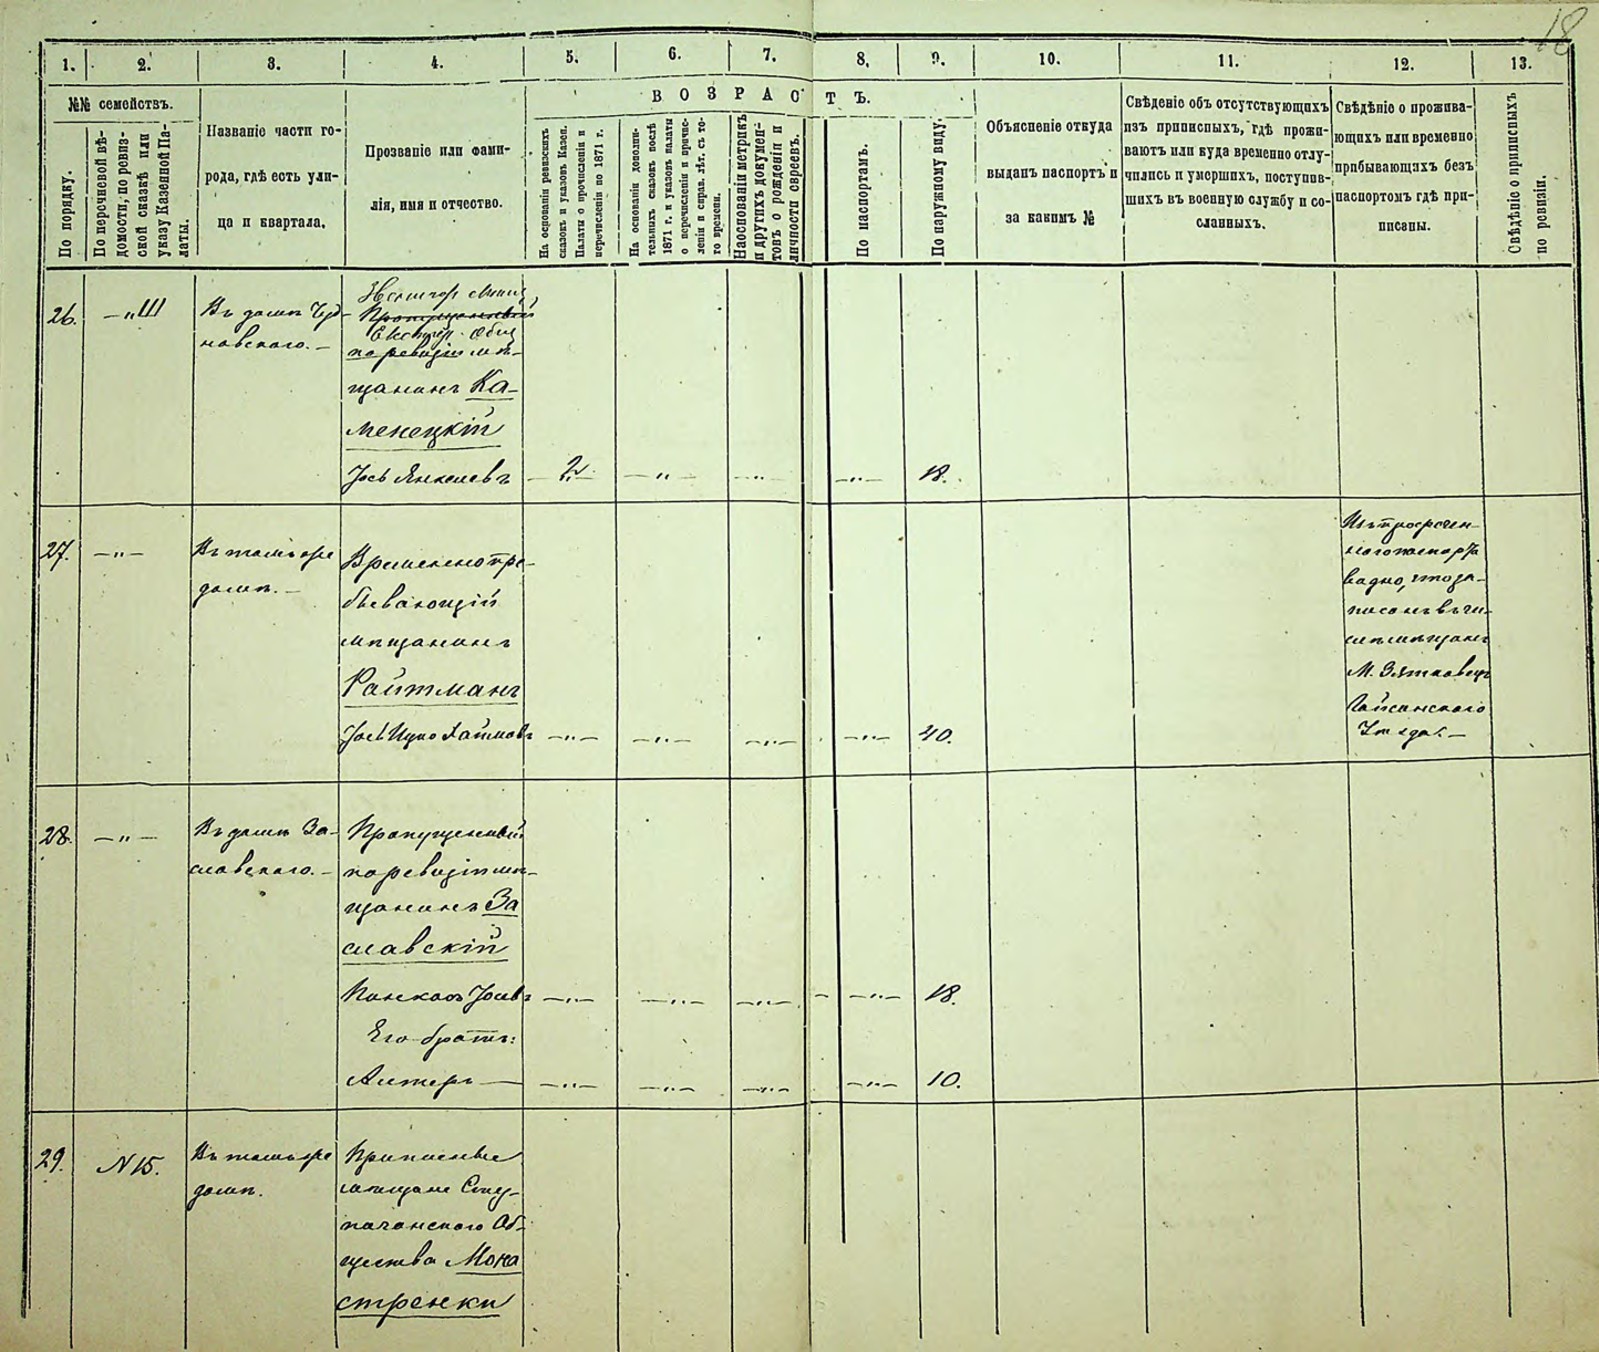 18
1. 2. 3. 4. 5. 6. 7. 8. 9. 10. 11. 12. 13.
№№ семействъ.
По порядку.
По перечневой вѣ-
домости, по ревиз-
ской сказкѣ или
указу Казенной Па-
латы.
Названіе части го-
рода, гдѣ есть ули-
ца и квартала.
Прозваніе или фами-
лія, имя и отчество.
ВОЗРАСТЪ.
На основаніи ревизскихъ
сказокъ и указовъ Казен.
Палаты о причисленіи и
перечисленіи по 1871 г.
На основаніи дополни-
тельныхъ сказокъ послѣ
1871 г. и указовъ палаты
о перечисленіи и причис-
леніи и справ. лѣт. съ то-
го времени.
Наоснованіи метрикъ
и другихъ докумен-
товъ о рожденіи и
личности евреевъ.
По паспортамъ.
По наружному виду.
Объясненіе откуда
выданъ паспортъ и
за какимъ №
Свѣденіе объ отсутствующихъ
изъ приписныхъ, гдѣ прожи-
ваютъ или куда временно отлу-
чились и умершихъ, поступив-
шихъ въ военную службу и со-
сланныхъ.
Свѣдѣніе о прожива-
ющихъ или временно
прибывающихъ безъ
паспортомъ гдѣ при-
писаны.
Свѣдѣніе о приписныхъ
по ревизіи.
26. — „ Ш
Въ домѣ Чер-
новскаго. —
Пропущенный
по ревизіи мѣ-
щанинъ Ка-
менецкій
Іосъ Янкелевъ — 2. — — „ — — „ — — „ — 18.
27. — „ —
Въ томъ же
домѣ. —
Временно пре-
бывающій
мѣщанинъ
Райтманъ
Іосъ Ицко Хаимовъ — „ — — „ — — „ — — „ — 40.
Изъ просрочен-
наго паспорта
видно, что за-
писанъ въ чи-
слѣ мѣщанъ
М. Зятковецъ
Гайсинскаго
Уѣзда. —
28. — „ —
Въ домѣ За-
славскаго. —
Пропущенный
по ревизіи мѣ-
щанинъ За
славскій
Пинхасъ Іосевъ — „ — — „ — — „ — — „ — 18.
Его братъ:
Алтеръ — — „ — — „ — — „ — — „ — 10.
29. N 15.
Въ томъ же
домѣ.
Приписные
мѣщане
Об-
щества Мона
стренки